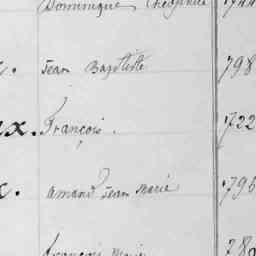 Dominique Théophile
x. Jean Baptiste 798
ux. François. 1722
x. Amand Jean Marie 1795
François Marie